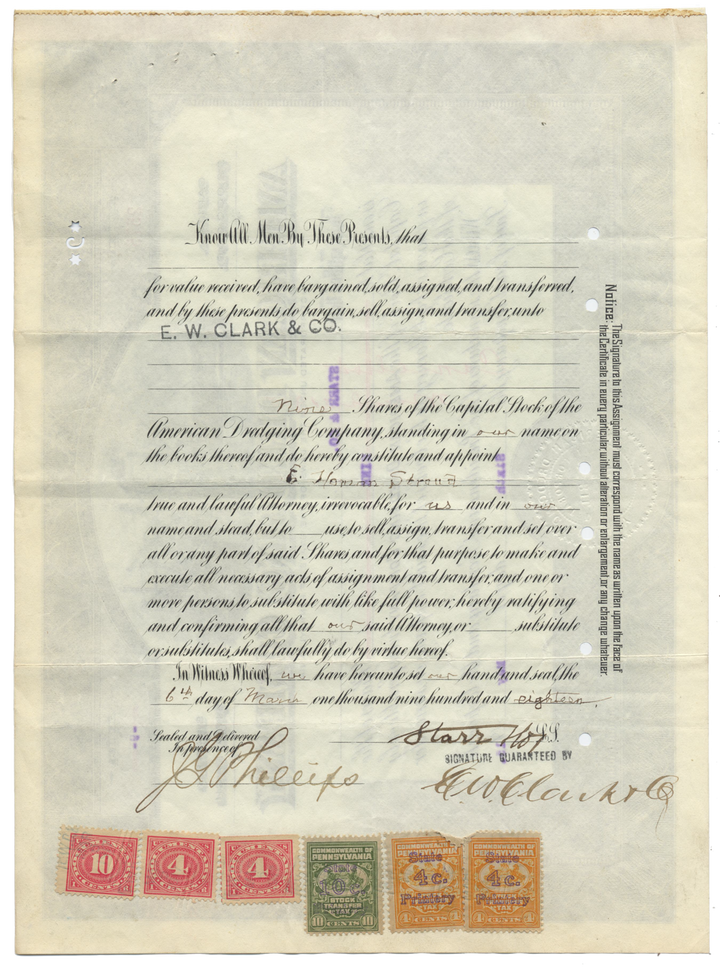 Know All Men By These Presents, that
for value received, have bargained, sold, assigned, and transferred,
and by these presents do bargain, sell, assign, and transfer, unto
E. W. CLARK & CO.
nine Shares of the Capital Stock of the
American Dredging Company, standing in our name on
the books thereof and do hereby constitute and appoint
E Stroud
true and lawful Attorney, irrevocable, for us and in our
name and stead, but to use, to sell, assign, transfer and set over
all or any part of said Shares and for that purpose to make and
execute all necessary acts of assignment and transfer, and one or
more persons, to substitute with like full power, hereby ratifying
and confirming all that our said Attorney, or substitute
or substitutes, shall lawfully do by virtue hereof.
In Witness Whereof, we have hereunto set our hand and seal, the
6th day of one thousand nine hundred and eighteen.
Sealed and delivered
In presence of
J G Phillips
Starr L.S.
SIGNATURE GUARANTEED BY
E W Clark & Co
Notice: The Signature to this Assignment must correspond with the name as written upon the face of
the Certificate in every particular without alteration or enlargement, or any change whatever.
10
4
4
COMMONWEALTH OF
PENNSYLVANIA
STOCK
TRANSFER
TAX
10 CENTS 10
COMMONWEALTH OF
PENNSYLVANIA
State
4c.
Printery
TAX
4 CENTS 4
COMMONWEALTH OF
PENNSYLVANIA
State
4c.
Printery
TAX
4 CENTS 4